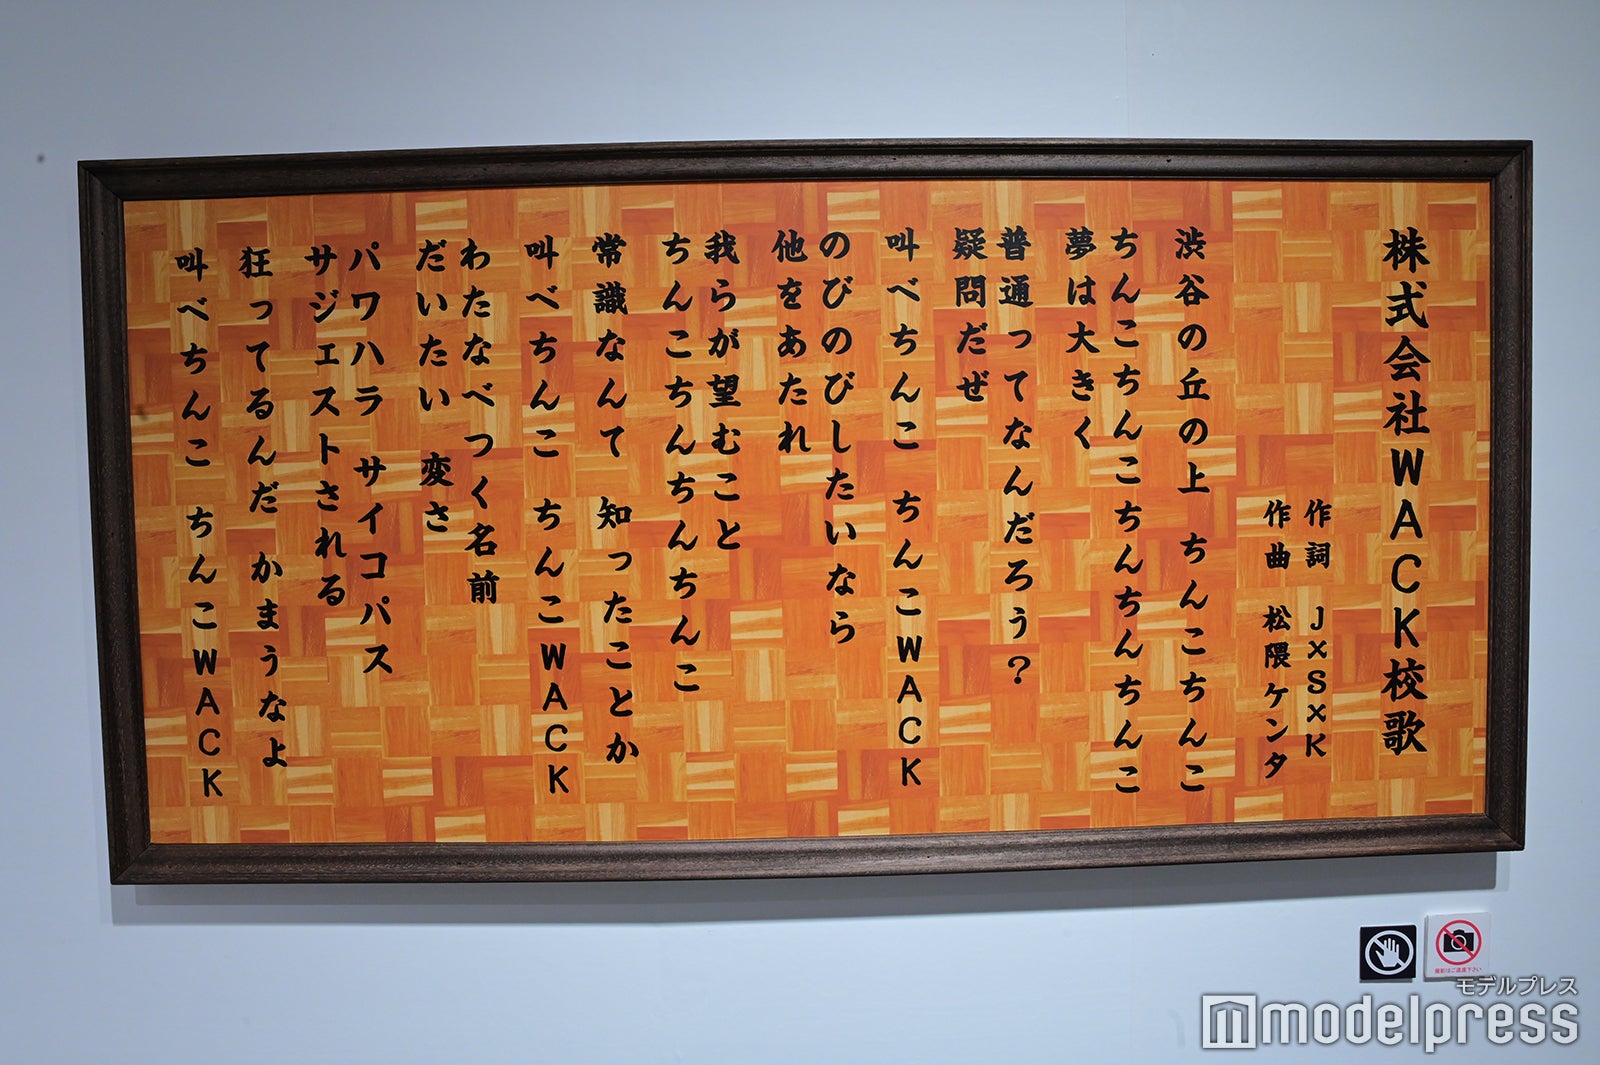 株式会社WACK校歌
作詞　J×S×K
作曲　松隈ケンタ
渋谷の丘の上　ちんこちんこ
ちんこちんこちんちんちんこ
夢は大きく
普通ってなんだろう？
疑問だぜ
叫べちんこ　ちんこWACK
のびのびのびしたいなら
他をあたれ
我らが望むこと
ちんこちんちんちんこ
常識なんて　知ったことか
叫べちんこ　ちんこWACK
わたなべつく名前
だいたい　変さ
パワハラ　サイコパス
サジェストされる
狂ってるんだ　かまうなよ
叫べちんこ　ちんこWACK
撮影はご遠慮下さい
モデルプレス
modelpress